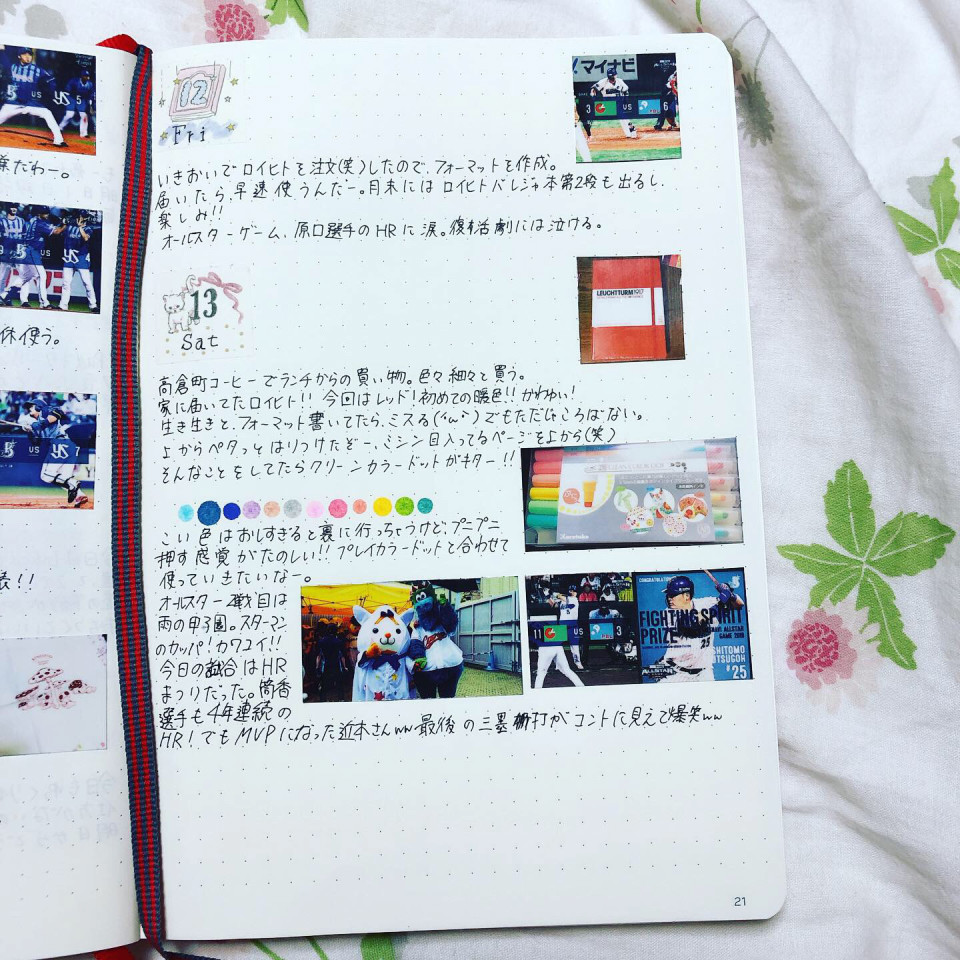 業だわー。
休使う。
!!
US
5
US
4
US
7
12
Fri
マイナビ
3 VS 6
いきおいでロイヒトを注文(笑)したので、フォーマットを作成。
届いたら、早速使うんだー。月末にはロイヒトバレジャ本第2段も出るし、
楽しみ!!
オールスターゲーム、原口選手のHRに涙。復活劇には泣ける。
13
Sat
LEUCHTTURM1917
高倉町コーヒーでランチからの買い物。色々細々と買う。
家に届いてたロイヒト!! 今回はレッド!初めての暖色!! かわゆい!
生き生きと、フォーマット書いてたら、ミスる(´ω`)でもただじゃころばない。
上からペタっとはりつけたぞー、ミシン目入ってるページを上から(笑)
そんなことをしてたらクリーンカラードットがキター!!
こい色はおしすぎると裏に行っちゃうけど、プニプニ
押す感覚がたのしい!! プレイカラードットと合わせて
使っていきたいなー。
オールスター2戦目は
雨の甲子園。スターマン
のカッパ!カワユイ!!
今日の試合はHR
まつりだった。筒香
選手も4年連続の
HR!でもMVPになった近本さんww最後の三塁打がコントに見えて爆笑ww
11 VS 3
CONGRATULATIONS
FIGHTING SPIRIT
PRIZE
ALLSTAR
GAME 2019
YOSHITOMO
TSUTSUGOH
#25
21